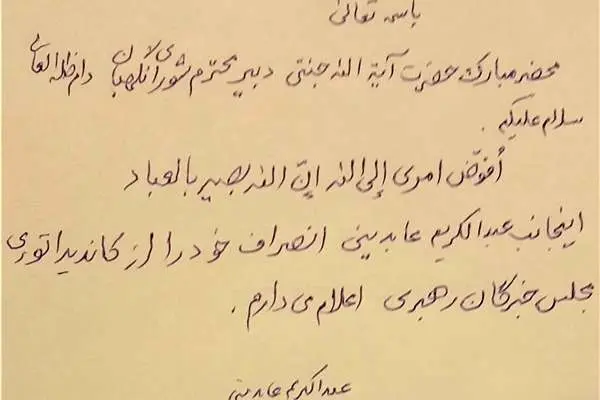 باسمه تعالی
محضر مبارک حضرت آیة الله جنتی دبیر محترم شورای نگهبان دام ظله العالی
سلام علیکم .
أفوّض امری إلی الله إنّ الله بصیر بالعباد
اینجانب عبدالکریم عابدینی انصراف خود را از کاندیداتوری
مجلس خبرگان رهبری اعلام می دارم .
عبدالکریم عابدینی